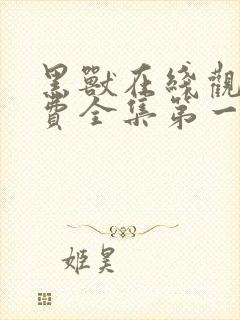 黑獸在綫觀
費全集第一
姬昊